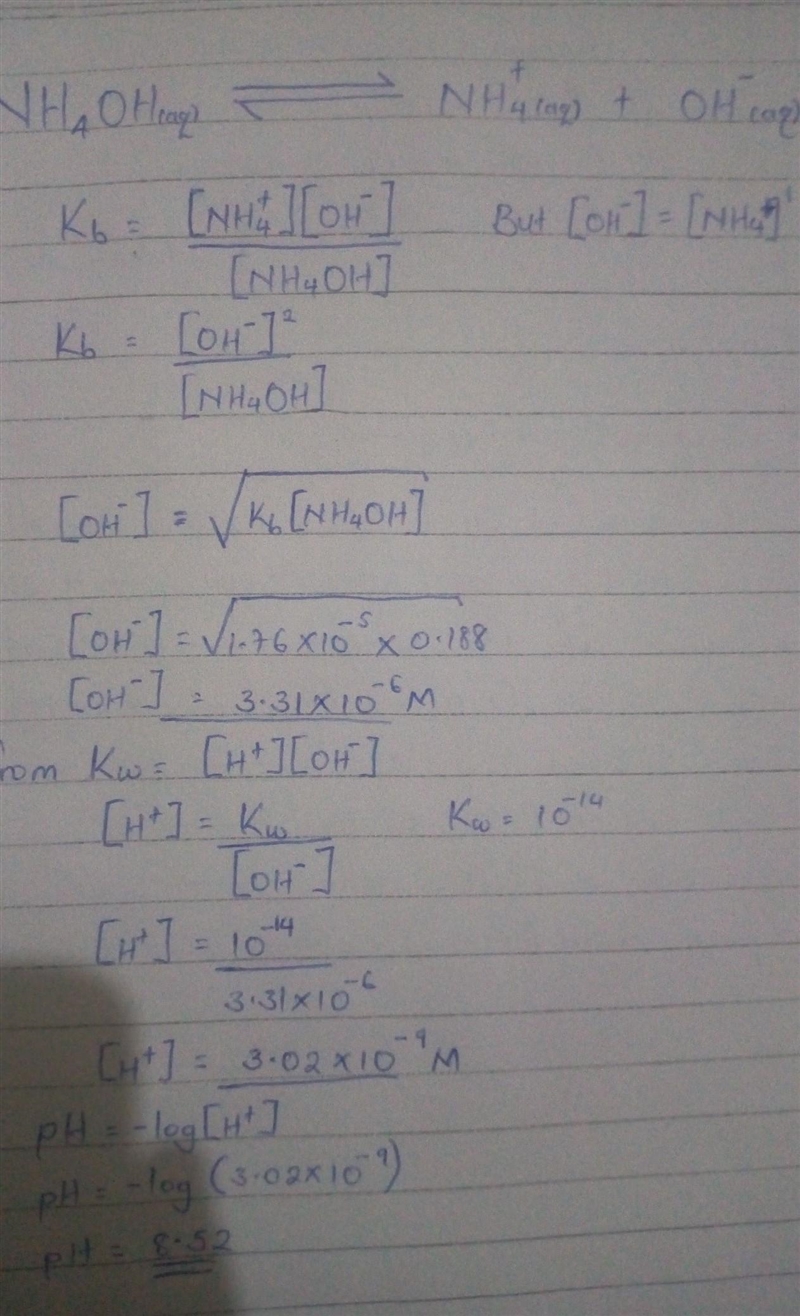 NH₄OH(aq) ⇌ NH₄⁺(aq) + OH⁻(aq)
Kb = [NH₄⁺][OH⁻] / [NH₄OH] But [OH⁻] = [NH₄⁺]
Kb = [OH⁻]² / [NH₄OH]
[OH⁻] = √Kb[NH₄OH]
[OH⁻] = √1.76×10⁻⁵ × 0.188
[OH⁻] = 3.31×10⁻⁶ M
rom Kw = [H⁺][OH⁻]
[H⁺] = Kw / [OH⁻] Kw = 10⁻¹⁴
[H⁺] = 10⁻¹⁴ / 3.31×10⁻⁶
[H⁺] = 3.02×10⁻⁹ M
pH = -log[H⁺]
pH = -log (3.02×10⁻⁹)
pH = 8.52